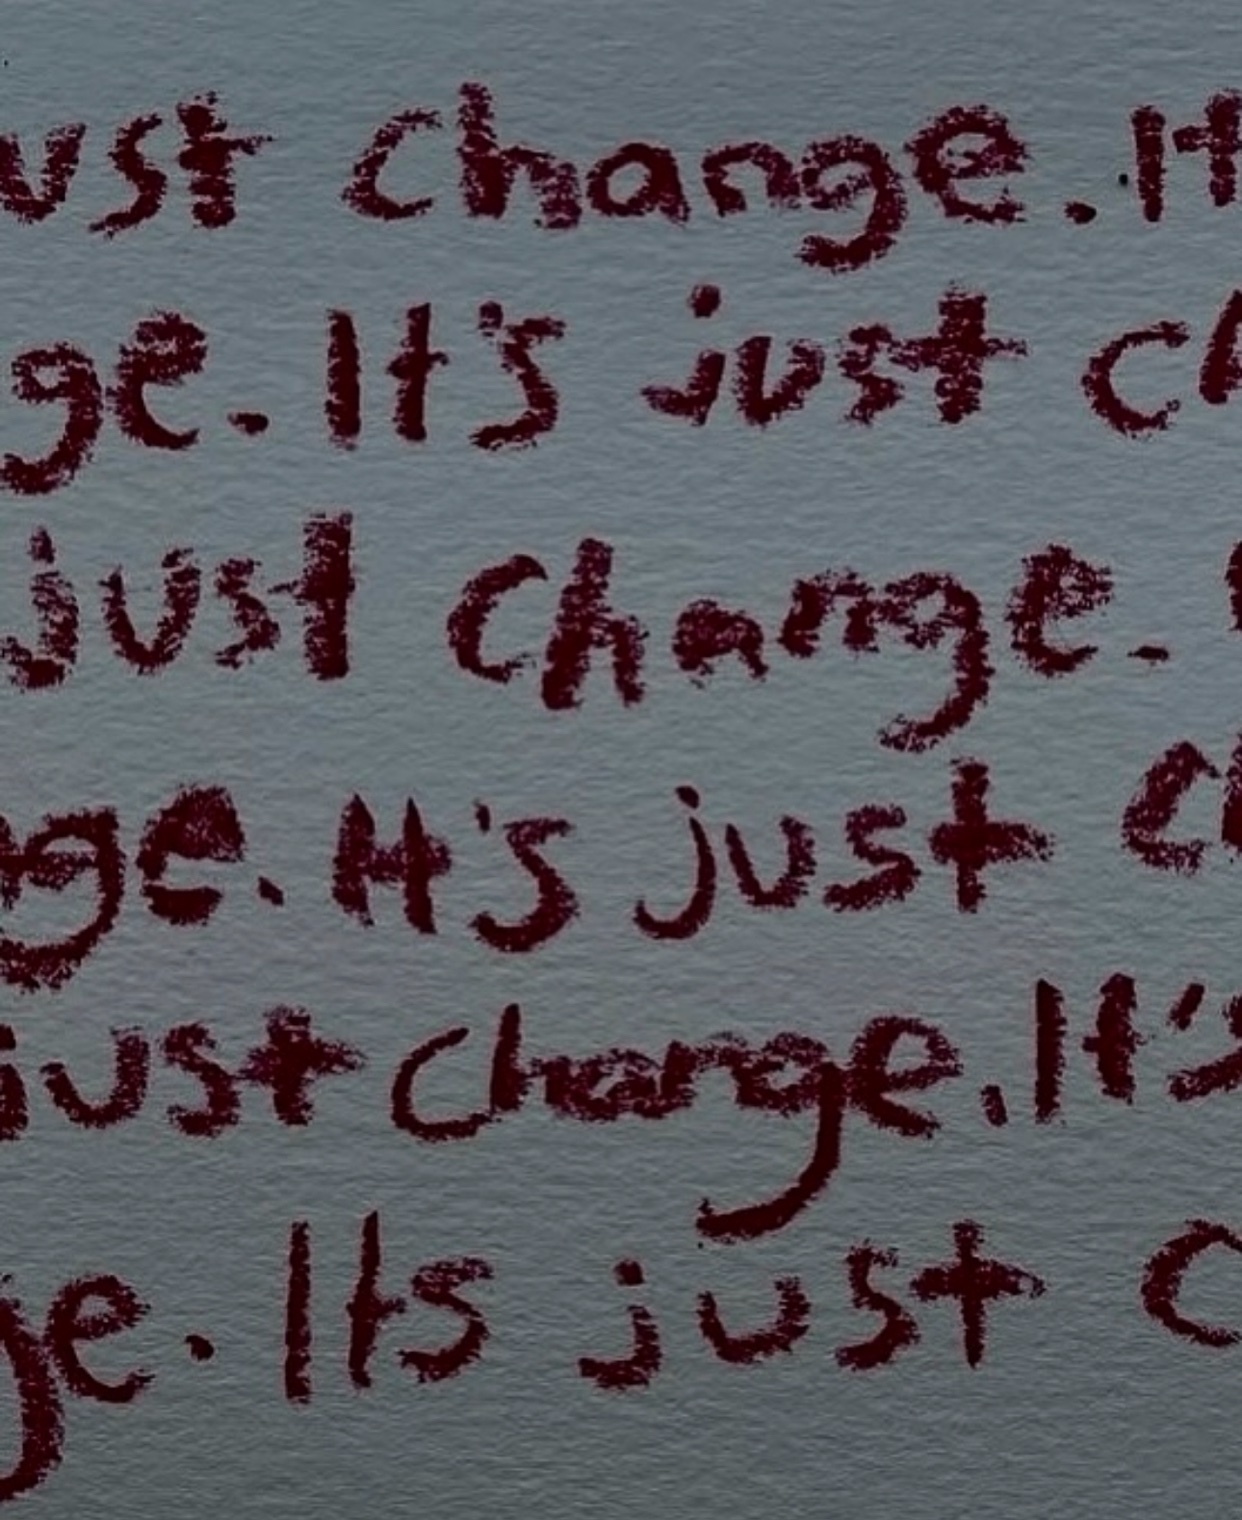 ust change. It
ge. It's just ch
just change.
nge. It's just ch
just change. It's
ge. Its just c